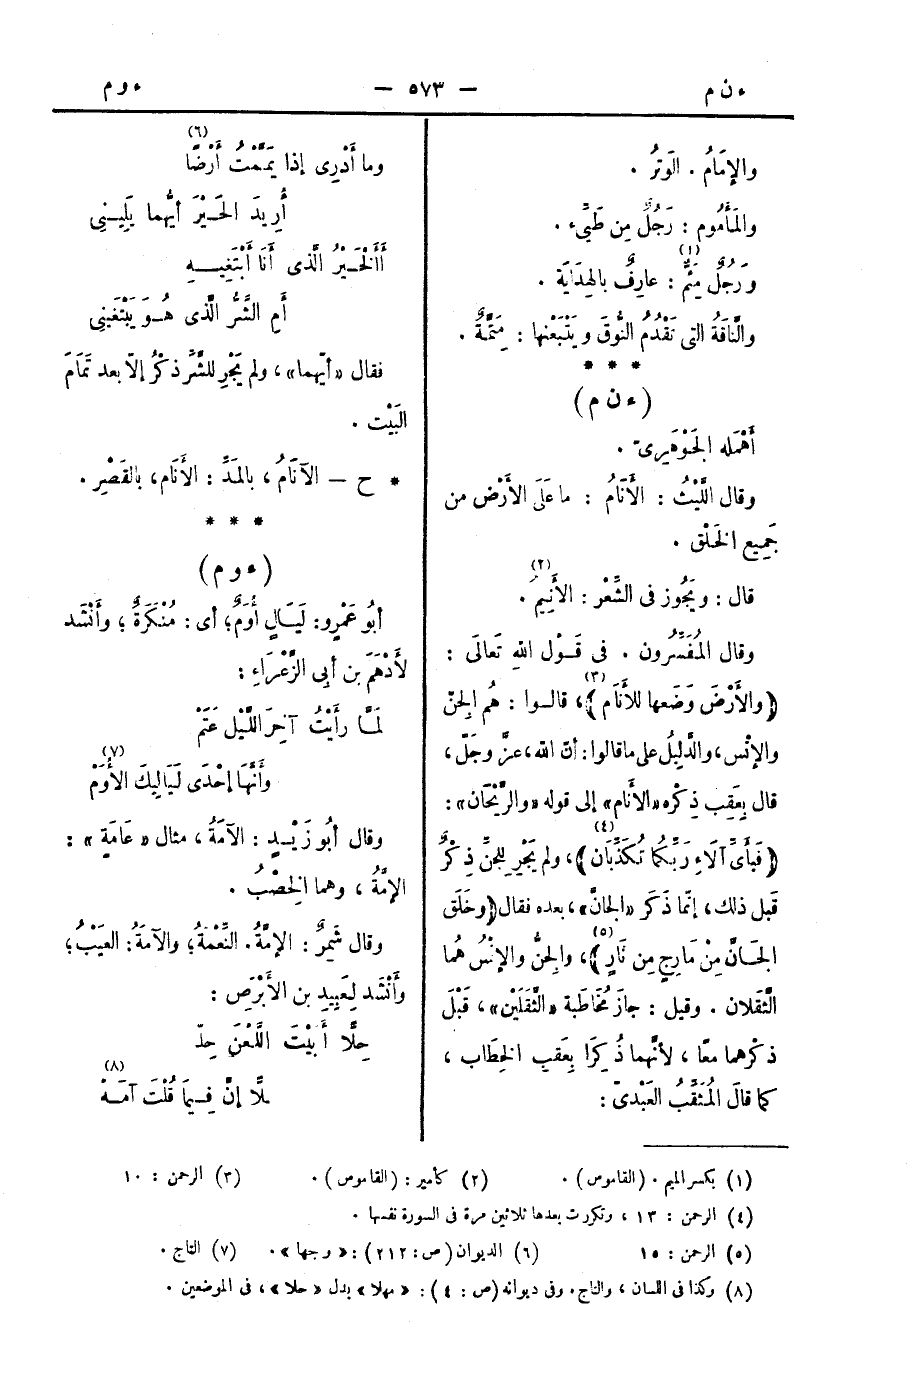 ء ن م — ٥٧٣ — ء و م
والإمَامُ . الوَتَرُ .
والمَأْمُوم : رَجُلٌ مِن طَيِّء .
ورَجُلٌ مِئَمٌّ (١) : عارِفٌ بالهِدَايَة .
والنَّاقَةُ التى تَقْدُمُ النُّوقَ و يَتْبَعْنها : مِئَمَّةٌ .
* * *
( ء ن م )
أَهْمَله الجَوْهَرِىّ .
وقال اللَّيْثُ : الأَنَامُ : ما عَلَى الأَرْض من
جَمِيع الخَلْق .
قال : ويَجُوز فى الشِّعْر : الأَنِيمُ (٢) .
وقال المُفَسِّرُون . فى قَـوْل اللهِ تَعالَى :
﴿ والأَرْضَ وَضَعها للأَنَام ﴾ (٣)، قالـوا : هُم الجِنّ
والإنْس، والدَّلِيلُ على ماقالوا : أنّ الله، عزَّ وجَلّ ،
قال بِعَقِب ذِكْره «الأنام» إلى قوله «والرَّيْحَان» :
﴿ فَبأَىِّ آلَاءِ رَبِّكُمَا تُكَذِّبَان ﴾ (٤)، ولم يَجْرِ للجِنِّ ذِكْرٌ
قَبل ذلك، إنّما ذَكَر «الجانّ»، بعده فقال ﴿ وخَلَق
الجَـانَّ مِنْ مَارِجٍ مِن نَارٍ ﴾ (٥)، والجِنُّ والإنْسُ هُما
الثَّقَلان . وقيل : جازَ مُخَاطَبة «الثَّقَلَيْن» ، قَبْلَ
ذكْرهما معًا ، لأنَّهما ذُكِرَا بِعَقِب الخِطَاب ،
كما قالَ المُثَقِّبُ العَبْدىّ :
وما أَدْرِى إذا يَمَّمْتُ أَرْضًا (٦)
أُرِيدُ الخَـيْرَ أيُّهما يَلِيـنِى
أَأَلْخَـيْرُ الَّذى أنَا أَبْتَغِيـــهِ
أمِ الشَّرُّ الَّذى هُـوَ يَبْتَغينِى
فقال «أيّهما» ، ولم يَجْرِ للشَّرّ ذكْرٌ إلّا بعد تَمَامَ
البَيْت .
* ح — الآنَامُ ، بالمَدِّ : الأَنَام، بالقَصْرِ .
* * *
( ء و م )
أبُو عَمْرٍو : لَيَـالٍ أُوَمٌ ؛ أى : مُنْكَرَةٌ ؛ وأَنْشَد
لأَدْهَمَ بن أبِى الزَّعْرَاءِ :
لَمَّـا رأَيْتُ آخِرَ اللَّيْـل عَتَمْ
وأَنَّهَا إحْدَى لَيَالِيكَ الأُوَمْ (٧)
وقال أبُو زَيْـدٍ : الآمَةُ ، مثال « عَامَةٍ » :
الإمَّةُ ، وهما الخِصْبُ .
وقال شَمِرٌ : الإمَّةُ . النِّعْمَةُ ؛ والآمَةُ : العَيْبُ ؛
وأَنْشَد لِعَبِيدِ بن الأَبْرَصِ :
حِلًّا أَبَيْتَ اللَّعْنَ حِـ
ـلًّا إنَّ فِـيمَا قُلْتَ آمَـهْ (٨)
(١) بكسر الميم . (القاموس) . (٢) كأمير : (القاموس) . (٣) الرحمن : ١٠
(٤) الرحمن : ١٣ ، وتكررت بعدها ثلاثين مرة فى السورة نفسها .
(٥) الرحمن : ١٥ (٦) الديوان (ص : ٢١٢) : « وجها » . (٧) التاج .
(٨) وكذا فى اللسان ، والتاج . وفى ديوانه (ص : ٤) : « مهلا » بدل « حلا » ، فى الموضعين .